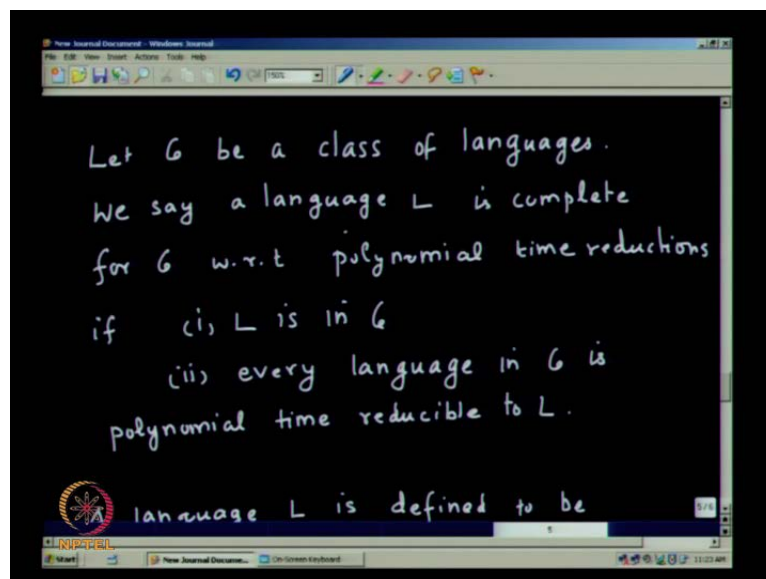 New Journal Document - Windows Journal
File Edit View Insert Actions Tools Help
150%
Let G be a class of languages.
We say a language L is complete
for G w.r.t polynomial time reductions
if (i) L is in G
(ii) every language in G is
polynomial time reducible to L.
A language L is defined to be
5/6
5
NPTEL
Start
New Journal Docume...
On-Screen Keyboard
11:23 AM